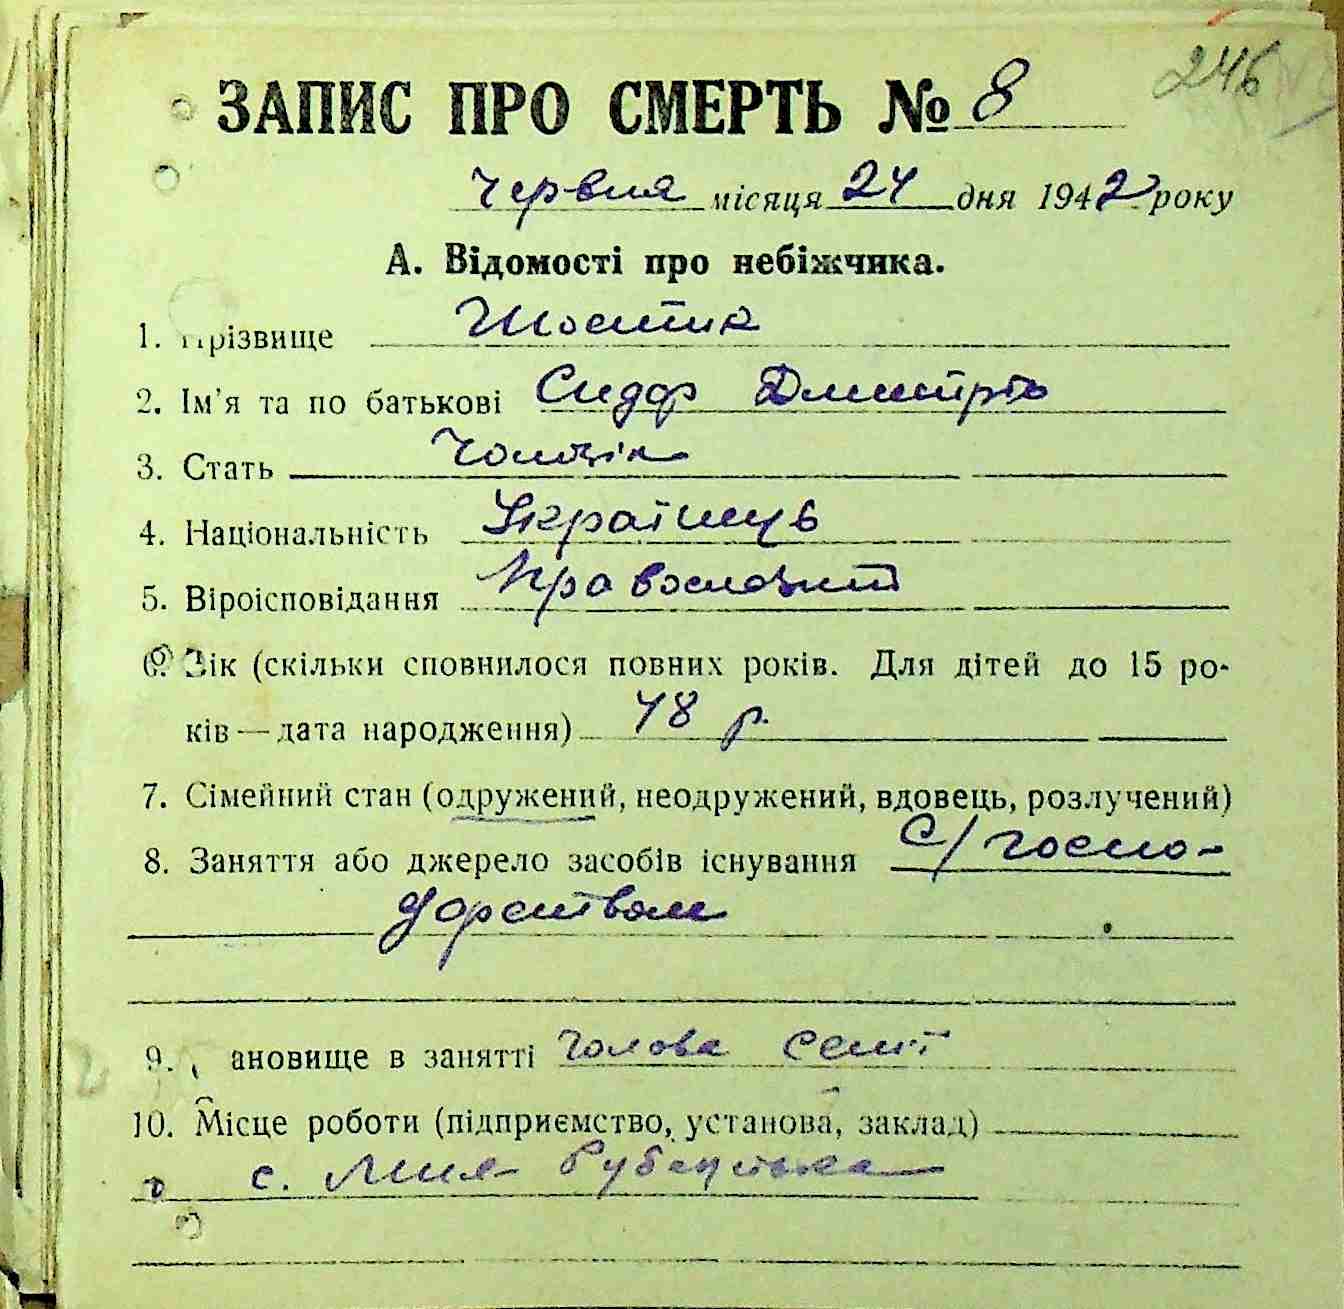 246
ЗАПИС ПРО СМЕРТЬ № 8
Червня місяця 24 дня 1942 року
А. Відомості про небіжчика.
1. Прізвище Шостик
2. Ім'я та по батькові Сидор Дмитрів
3. Стать Чоловік
4. Національність Українець
5. Віроісповідання Православний
6. Вік (скільки сповнилося повних років. Для дітей до 15 ро-
ків — дата народження) 48 р.
7. Сімейний стан (одружений, неодружений, вдовець, розлучений)
8. Заняття або джерело засобів існування С/госпо-
дарством
9. ановище в занятті Голова семї
10. Місце роботи (підприємство, установа, заклад)
с.